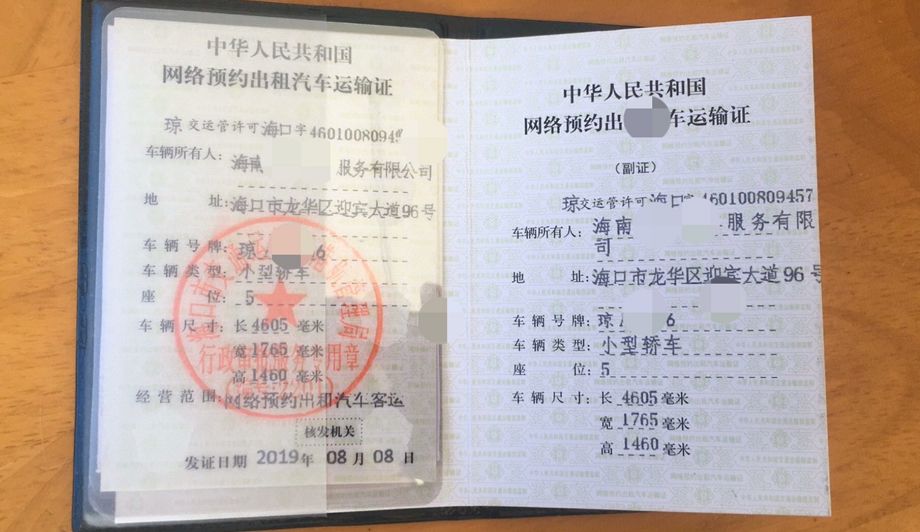 中华人民共和国
网络预约出租汽车运输证
琼 交运管许可 海口 字 4601008094
车辆所有人: 海南 服务有限公司
地 址: 海口市龙华区迎宾大道96号
车辆号牌: 琼 6
车辆类型: 小型轿车
座 位: 5
车辆尺寸: 长 4605 毫米
宽 1765 毫米
高 1460 毫米
经营范围: 网络预约出租汽车客运
核发机关
发证日期 2019年 08月 08日
中华人民共和国
网络预约出 车运输证
(副证)
琼 交运管许可 海口 字 460100809457
车辆所有人: 海南 服务有限
司
地 址: 海口市龙华区迎宾大道96号
车辆号牌: 琼 6
车辆类型: 小型轿车
座 位: 5
车辆尺寸: 长 4605 毫米
宽 1765 毫米
高 1460 毫米